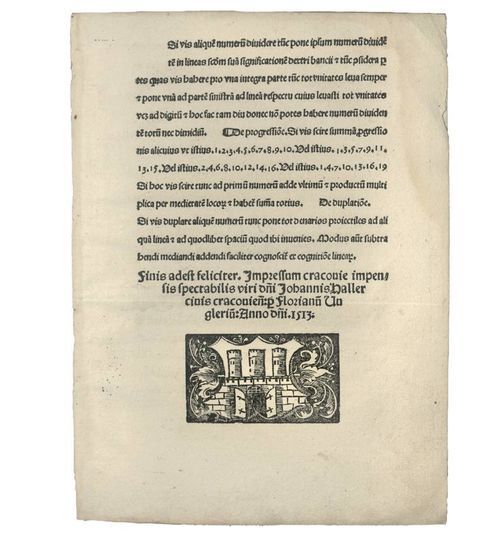 Si vis aliquē numerū diuidere tūc pone ipsum numerū diuidē
tē in lineas scōm suā significationē dextri bancii ⁊ tūc ꝯsidera ꝑ
tes quas vis habere pro vna integra parte tūc tot vnitates leua semper
⁊ pone vnā ad partē sinistrā ad lineā respectu cuius leuasti tot vnitates
vcꝫ ad digitū ⁊ hoc fac tam diu donec nō potes habere numerū diuiden
tē totū nec dimidiū. ¶ De progressiōe. Si vis scire summā ꝓgressio
nis alicuius vt istius .1.2.3.4.5.6.7.8.9.10. Vel istius .1.3.5.7.9.11.
13.15. Vel istius .2.4.6.8.10.12.14.16. Vel istius .1.4.7.10.13.16.19
Si hoc vis scire tunc ad primū numerū adde vltimū ⁊ productū multi
plica per medietatē locoꝝ ⁊ habes sum̄a totius. De duplatiōe.
Si vis duplare aliquē numerū tunc pone tot denarios proiectiles ad ali
quā lineā ⁊ ad quodlibet spaciū quod ibi inuenies. Modus aūt subtra
hendi mediandi addendi faciliter cognoscit̄ ex cognitiōe lineaꝝ.
Finis adest feliciter. Impressum cracouie impen⸗
sis spectabilis viri dn̄i Johannis Haller
ciuis cracouieñ: ꝑ Florianū Un
gleriū: Anno dn̄i .1513.